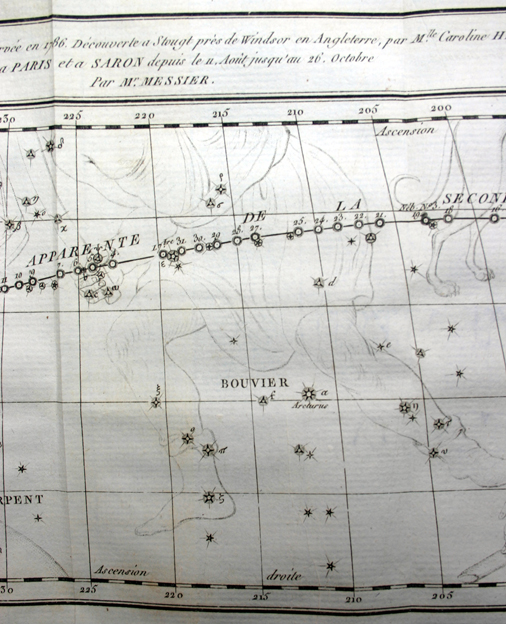 1786. Découverte a Slougt près de Windsor en Angleterre, par M.lle Caroline H
a PARIS et a SARON depuis le 11. Août jusqu'au 26. Octobre
Par Mr. MESSIER.
230 225 220 215 210 205 200
Ascension
APPARENTE DE LA SECON
Neb. N.º 3.
31. 30. 29. 28. 27. 25. 24. 23. 22. 21.
d
e
BOUVIER
ξ f α η
Arcturus
υ
ζ
RPENT
Ascension droite
230 225 220 215 210 205